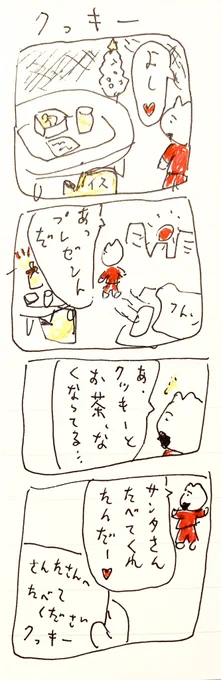 クッキー
よし♥
イス
あっ
プレゼント
だ
フん、
あ、
クッキーと
お茶、な
くなってる…
サンタさん
たべてくれ
たんだー♥
さんたさんへ
たべて
ください
クッキー